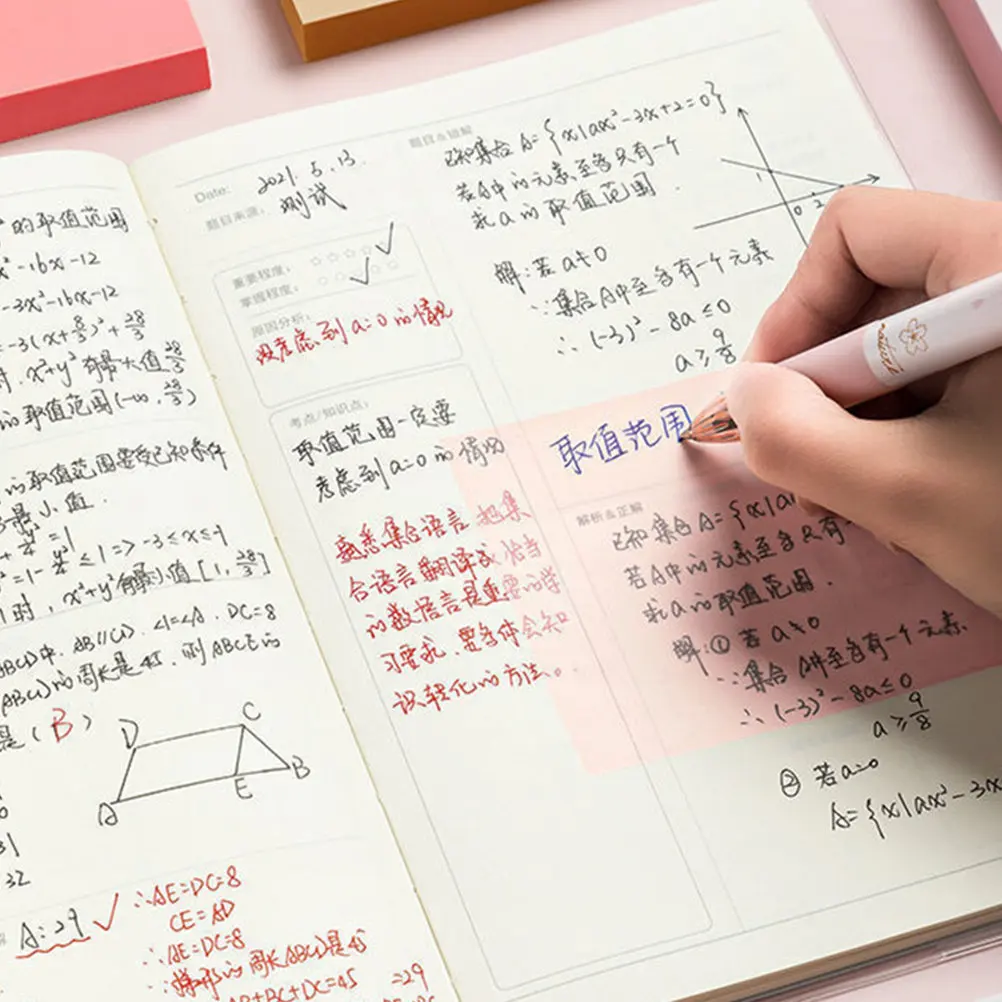 的取值范围
x²-16x-12
-3x²-16x-12
-3(x+8/3)²+28/3
时,x²+y²有最大值28/3
的取值范围(-∞,28/3)
的取值范围要受已知条件
最小值.
=1
=> -3≤x≤-1
时,x²+y²有最小值[1,28/3]
ABCD中.AB//CD.∠1=∠A.DC=8
ABCD的周长是45.则
是(B)
D
C
A
E
B
31
32
A:29
∴AE=DC=8
CE=AD
∴AE=DC=8
∴梯形的周长ABCD是45
AB+BC+DC=45
=29
Date:
2021.5.13.
题目来源:
测试
重要程度:
掌握程度:
原因分析:
没考虑到a=0的情况
考点/知识点:
取值范围一定要
考虑到a=0的情况
熟悉集合语言.把集
合语言翻译成恰当
的数语言是重要的学
习要求,要多体会知
识转化的方法。
题目&错解
已知集合A={x|ax²-3x+2=0}
若A中的元素至多只有一个
求a的取值范围.
1
0
2
解:若a≠0
∵集合A中至多有一个元素
∴(-3)²-8a≤0
a≥9/8
取值范围
解析&正解
已知集合A={x|a
若A中的元素至多只有一
求a的取值范围.
解:①若a≠0
∵集合A中至多有一个元素.
∴(-3)²-8a≤0
a≥9/8
②若a=0
A={x|ax²-3x